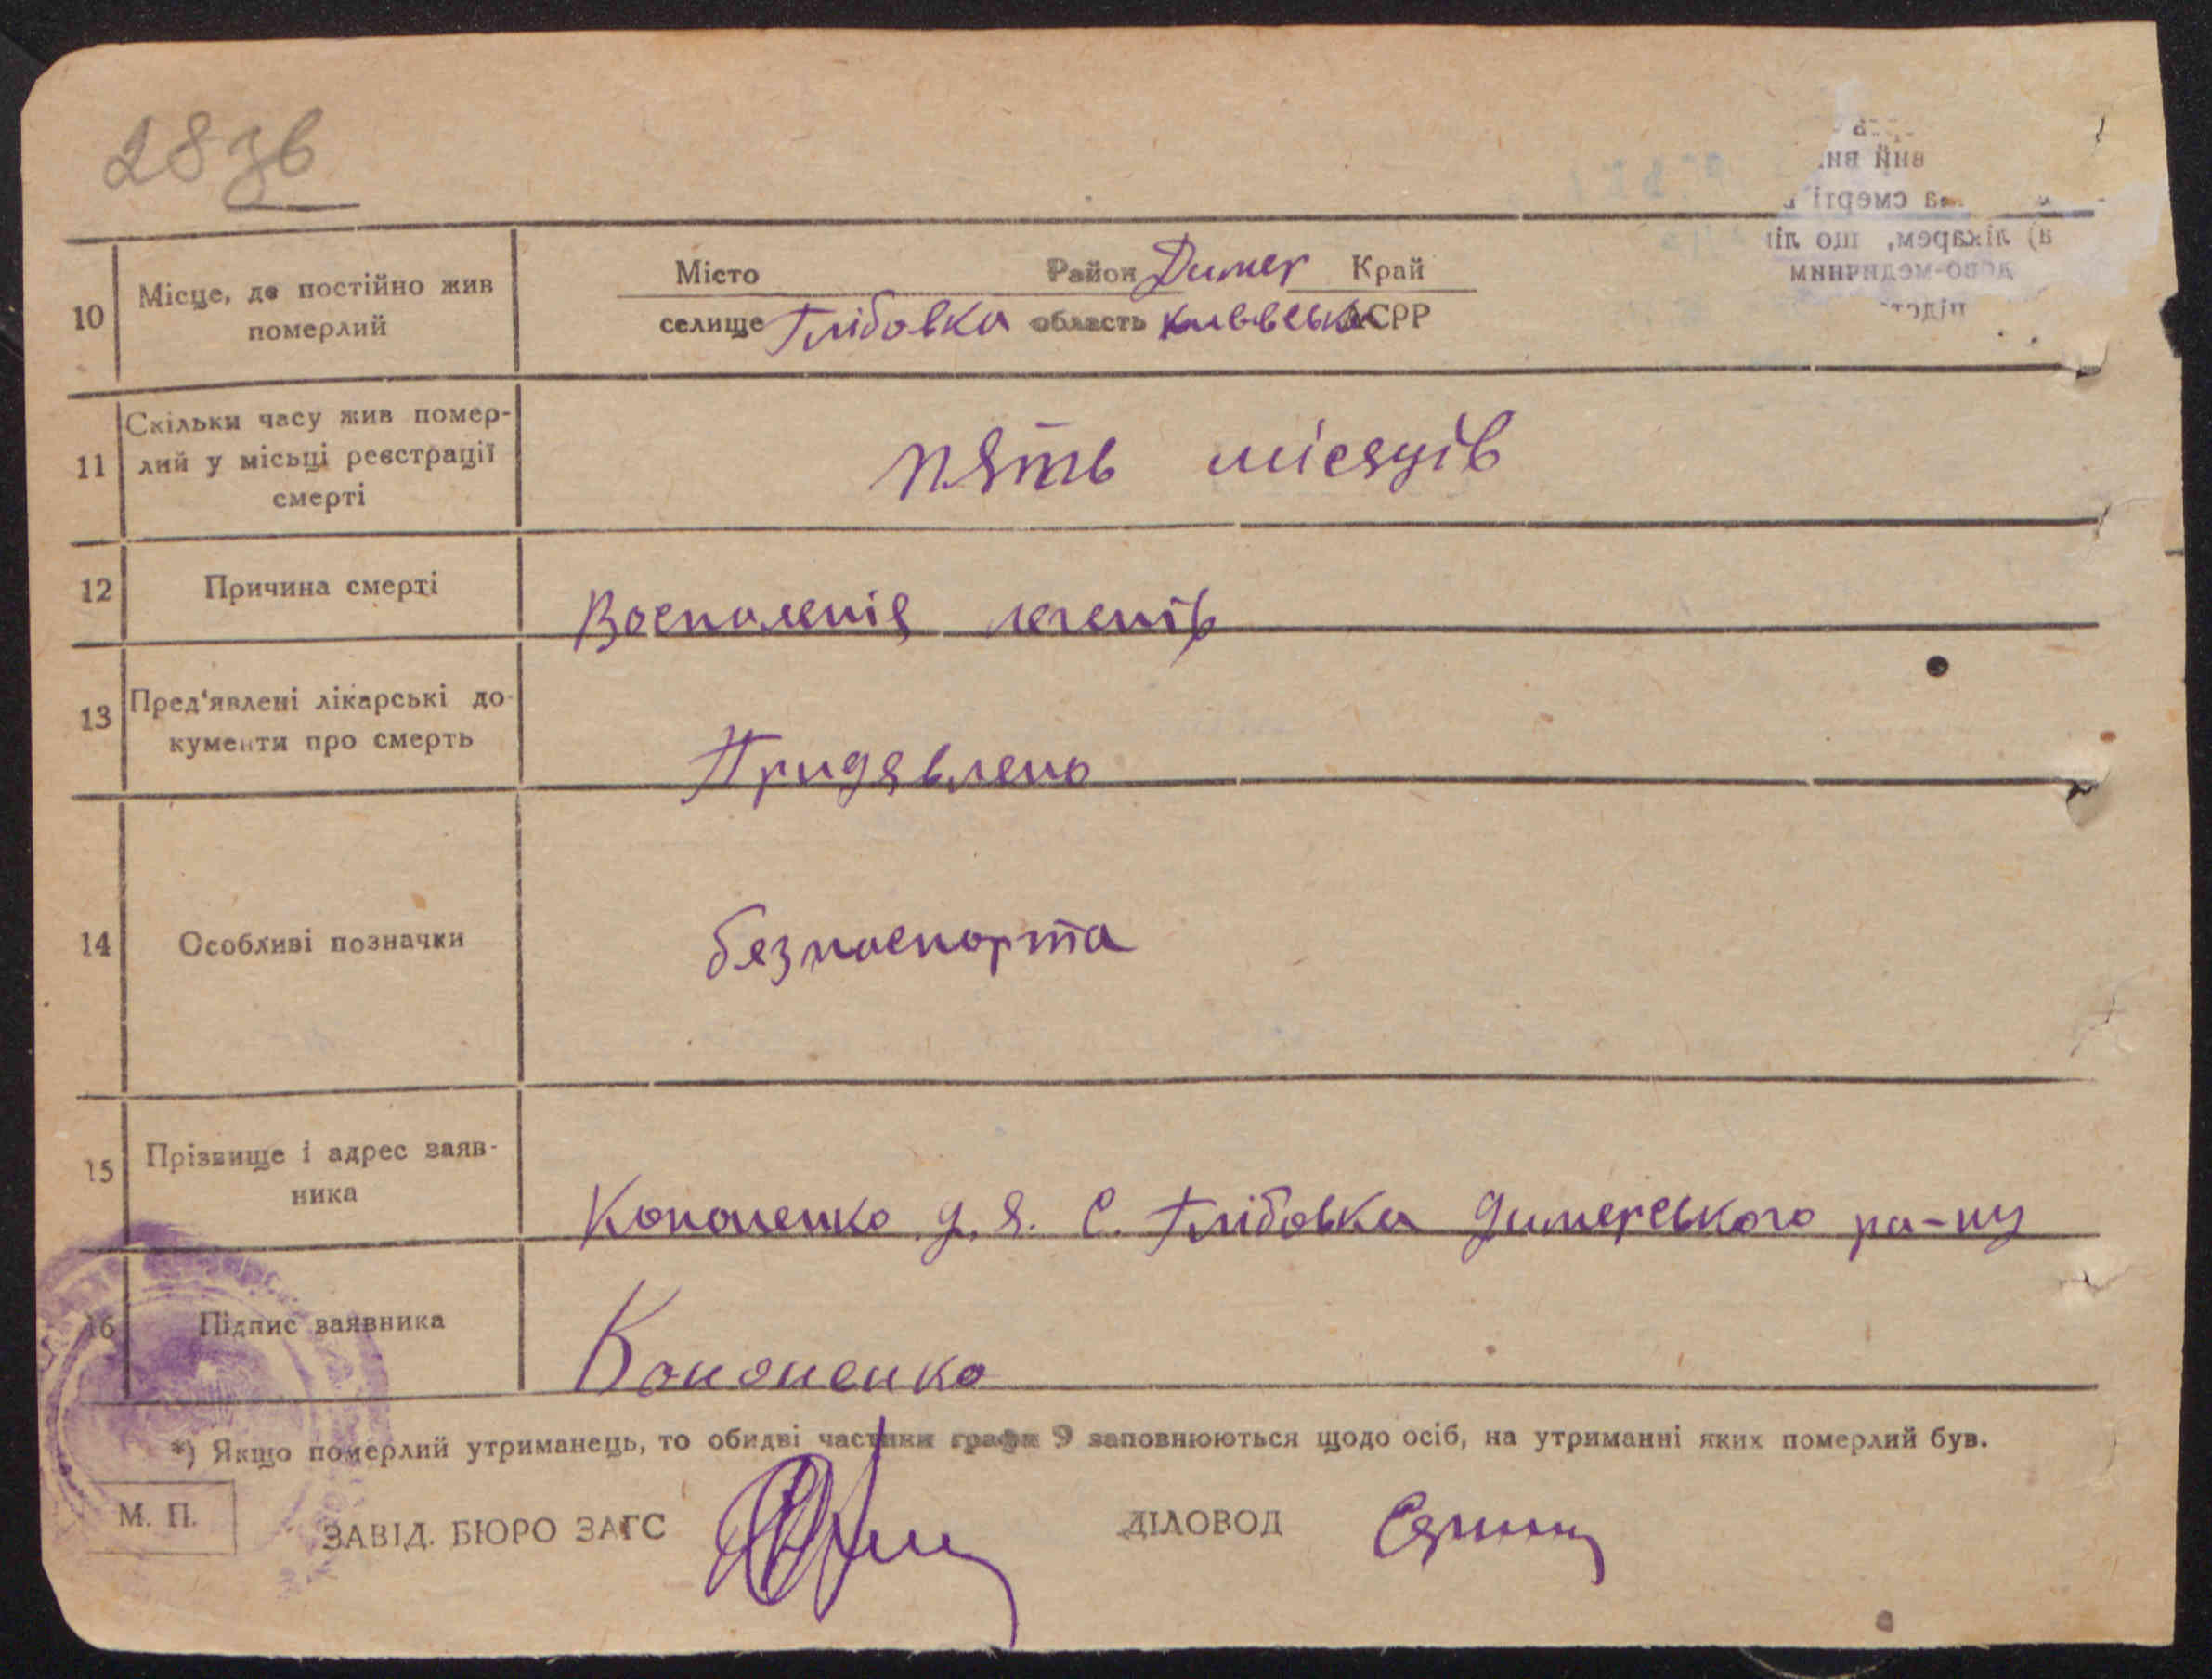 28зв
10 Місце, де постійно жив померлий
Місто Район Димер Край
селище Глібовка область Київська АСРР
11 Скільки часу жив помер-
лий у місьці реєстрації
смерті
пять місяців
12 Причина смерті
Воспаленія легенів
13 Пред'явлені лікарські до-
кументи про смерть
Придявлено
14 Особливі позначки
безпаспорта
15 Прізвище і адрес заяв-
ника
Кононенко Д. Я. С. Глібовка Димерського ра-ну
16 Підпис заявника
Кононенко
*) Якщо померлий утриманець, то обидві частини графи 9 заповнюються щодо осіб, на утриманні яких померлий був.
М. П.
ЗАВІД. БЮРО ЗАГС ДІЛОВОД